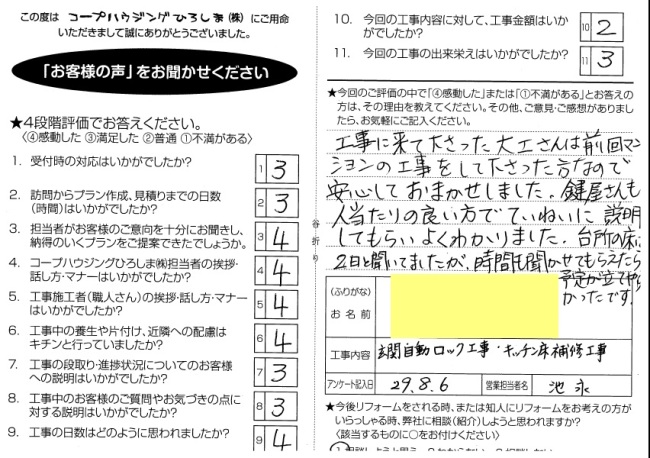 この度は コープハウジングひろしま(株) にご用命
いただきまして誠にありがとうございました。
「お客様の声」をお聞かせください
★4段階評価でお答えください。
〈④感動した ③満足した ②普通 ①不満がある〉
1. 受付時の対応はいかがでしたか?
1 3
2. 訪問からプラン作成、見積りまでの日数
(時間)はいかがでしたか?
2 3
3. 担当者がお客様のご意向を十分にお聞きし、
納得のいくプランをご提案できたでしょうか。
3 4
4. コープハウジングひろしま㈱担当者の挨拶・
話し方・マナーはいかがでしたか?
4 4
5. 工事施工者(職人さん)の挨拶・話し方・マナー
はいかがでしたか?
5 4
6. 工事中の養生や片付け、近隣への配慮は
キチンと行っていましたか?
6 4
7. 工事の段取り・進捗状況についてのお客様
への説明はいかがでしたか?
7 3
8. 工事中のお客様のご質問やお気づきの点に
対する説明はいかがでしたか?
8 3
9. 工事の日数はどのように思われましたか?
9 4
谷折り
10. 今回の工事内容に対して、工事金額はいか
がでしたか?
10 2
11. 今回の工事の出来栄えはいかがでしたか?
11 3
★今回のご評価の中で「④感動した」または「①不満がある」とお答えの
方は、その理由を教えてください。その他、ご意見・ご感想がありました
ら、お気軽にご記入ください。
工事に来て下さった大工さんは前回マン
ションの工事をして下さった方なので
安心しておまかせしました。鍵屋さんも
人当たりの良い方でていねいに説明
してもらいよくわかりました。台所の床に
2日と聞いてましたが、時間も聞かせてもらえたら
予定が立てやす
かったです。
(ふりがな)
お名前
工事内容 玄関自動ロック工事・キッチン床補修工事
アンケート記入日 29.8.6 営業担当者名 池永
★今後リフォームをされる時、または知人にリフォームをお考えの方が
いらっしゃる時、弊社に相談(紹介)しようと思われますか?
〈該当するものに○をお付けください〉